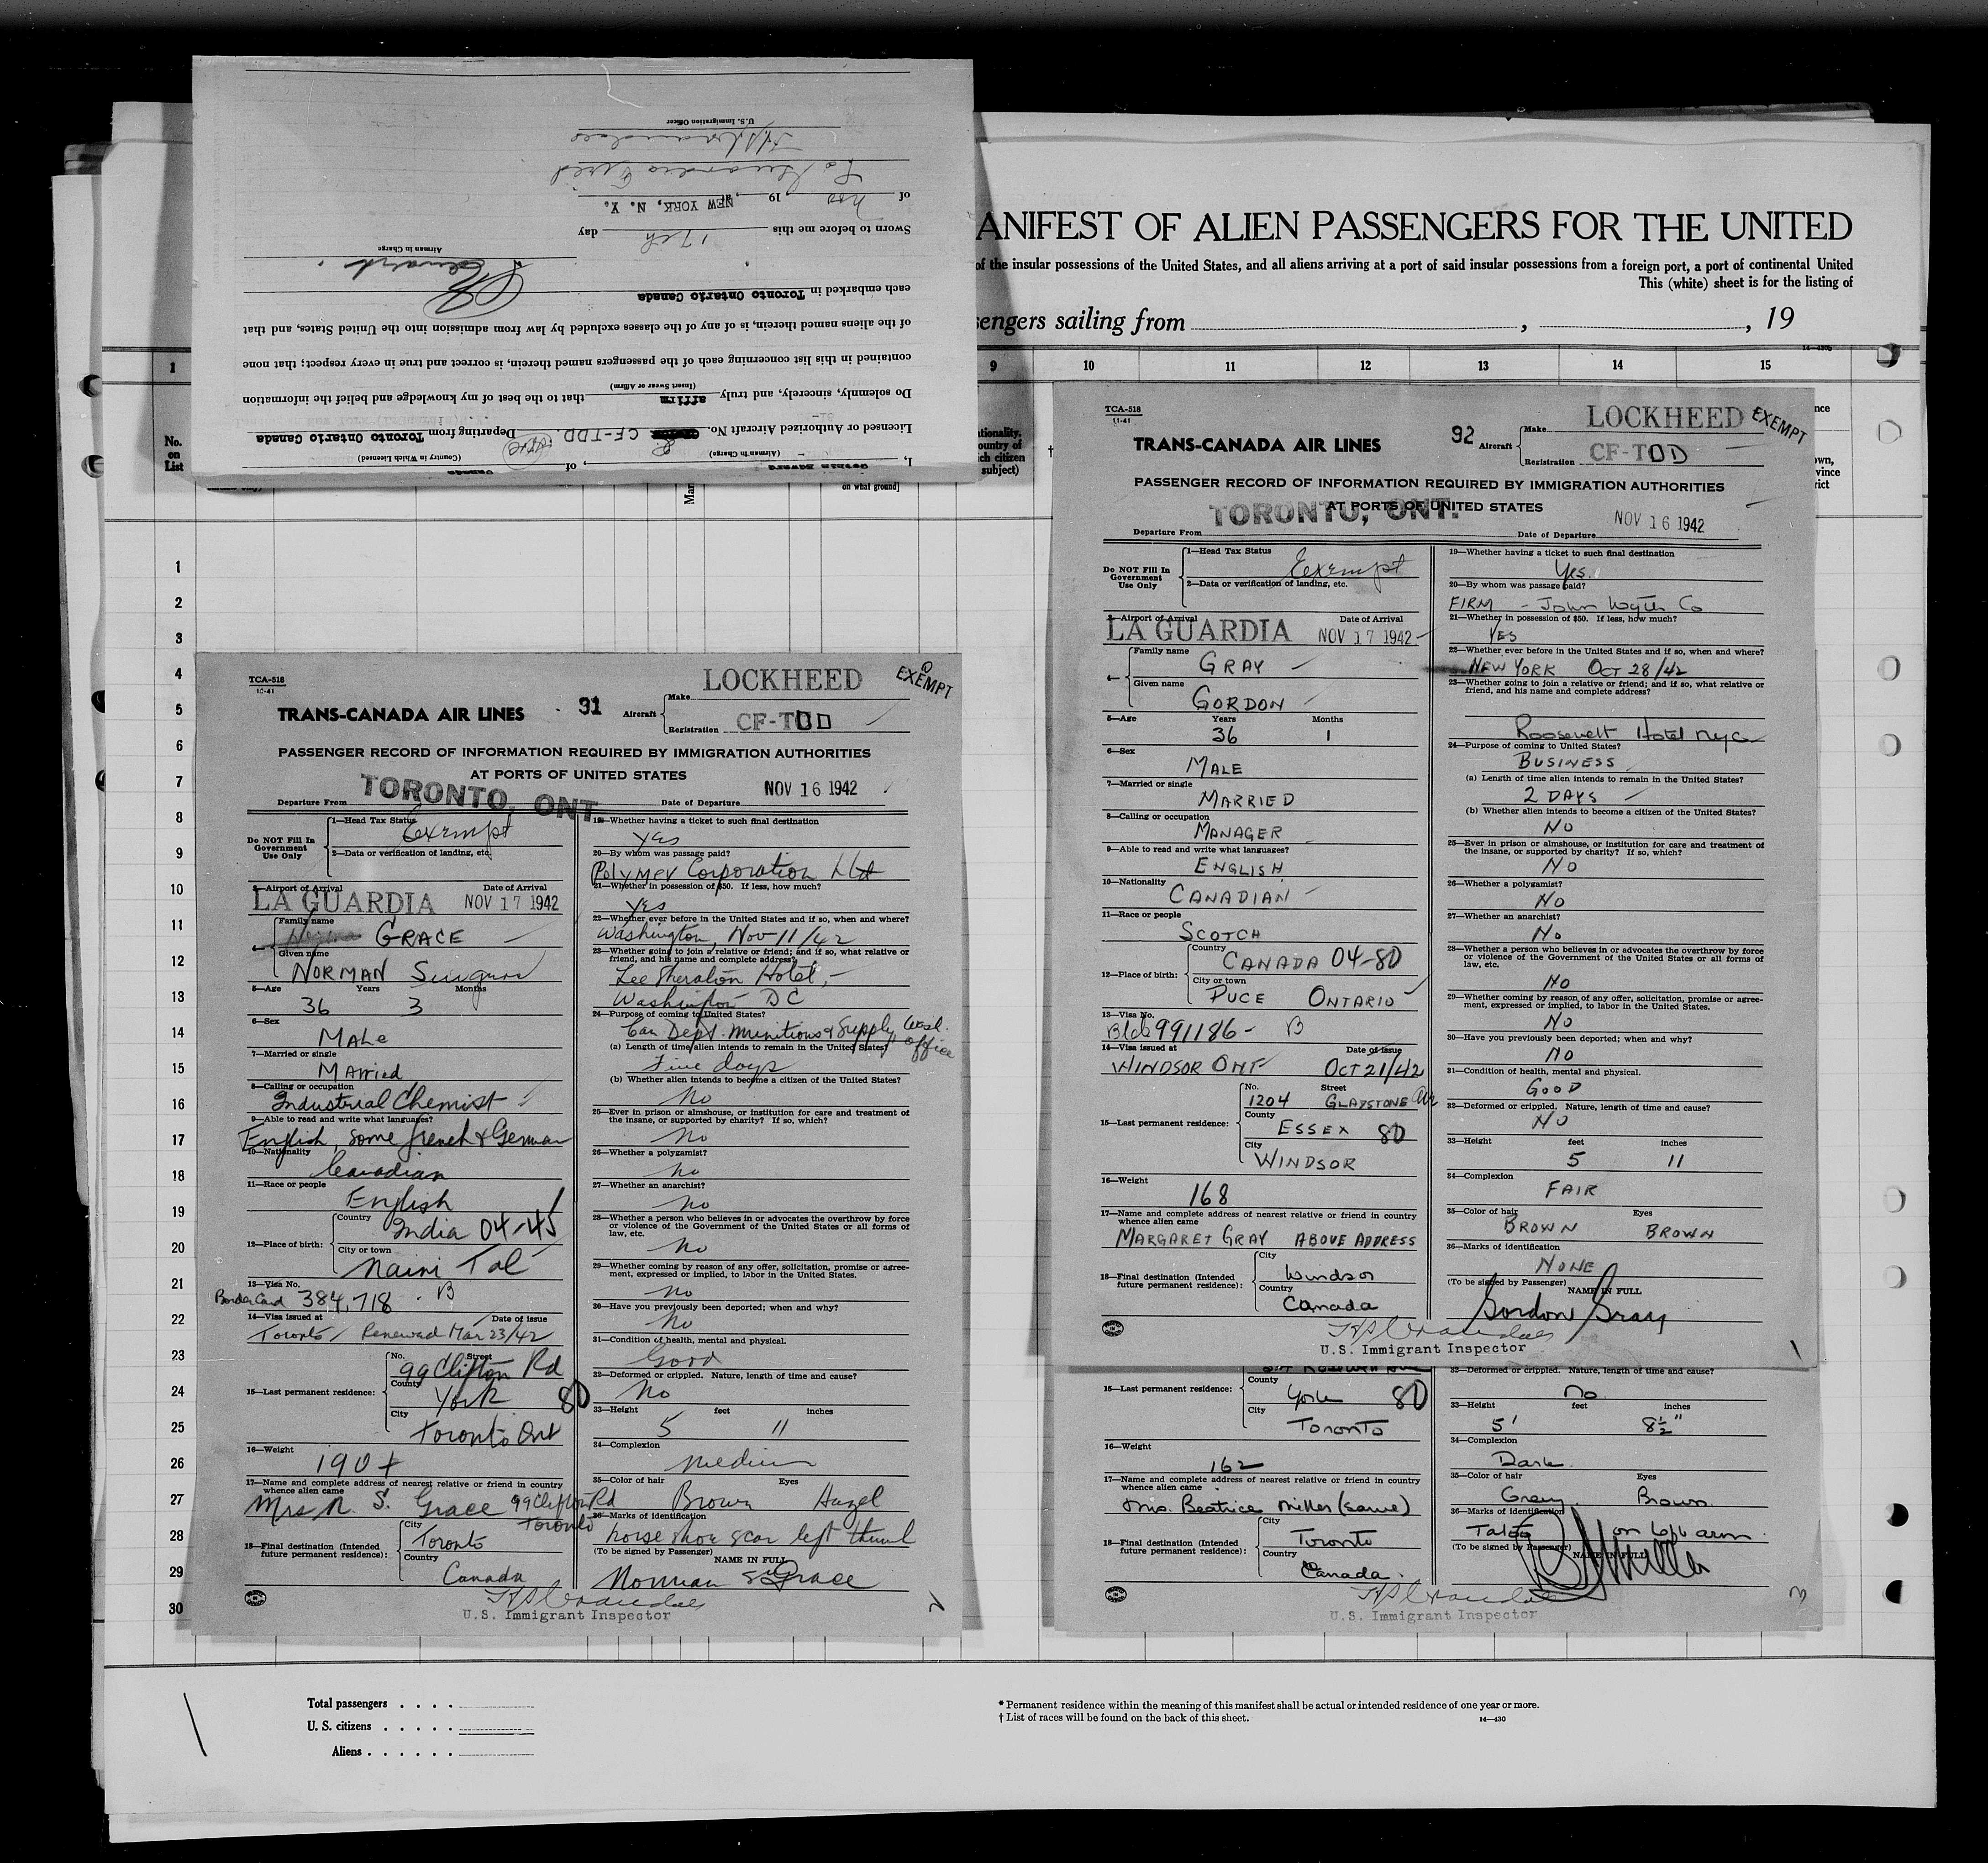 MANIFEST OF ALIEN PASSENGERS FOR THE UNITED
of the insular possessions of the United States, and all aliens arriving at a port of said insular possessions from a foreign port, a port of continental United
This (white) sheet is for the listing of
sengers sailing from , , 19
1 9 10 11 12 13 14 15
No.
on
List
I, German Edward , of Canada
(Airman in Charge) (Country in Which Licensed)
Licensed or Authorized Aircraft No. CF-TDD. Departing from Toronto Ontario Canada
Do solemnly, sincerely, and truly affirm that to the best of my knowledge and belief the information
(Insert Swear or Affirm)
contained in this list concerning each of the passengers named therein, is correct and true in every respect; that none
of the aliens named therein, is of any of the classes excluded by law from admission into the United States, and that
each embarked in Toronto Ontario Canada
Airman in Charge
Sworn to before me this 17th day
of Nov , 19 , at NEW YORK, N. Y.
La Guardia Field
U.S. Immigration Officer
on what ground]
1
2
3
4
5
6
7
8
9
10
11
12
13
14
15
16
17
18
19
20
21
22
23
24
25
26
27
28
29
30
TCA-518
10-41
TRANS-CANADA AIR LINES
91
Aircraft
Make LOCKHEED
Registration CF-TDD
EXEMPT
PASSENGER RECORD OF INFORMATION REQUIRED BY IMMIGRATION AUTHORITIES
AT PORTS OF UNITED STATES
Departure From TORONTO, ONT Date of Departure NOV 16 1942
Do NOT Fill In
Government
Use Only
1—Head Tax Status Exempt
2—Data or verification of landing, etc.
3—Airport of Arrival Date of Arrival
LA GUARDIA NOV 17 1942
4—
Family name
GRACE
Given name
NORMAN
5—Age Years Months
36 3
6—Sex
Male
7—Married or single
Married
8—Calling or occupation
Industrial Chemist
9—Able to read and write what languages?
English, some french & German
10—Nationality
Canadian
11—Race or people
English
12—Place of birth:
Country
India 04-45
City or town
Naini Tal
13—Visa No.
Border Card 384,718 - B
14—Visa issued at Date of issue
Toronto / Renewed Mar 23/42
15—Last permanent residence:
No. Street
99 Clifton Rd
County
York 80
City
Toronto Ont
16—Weight
190 +
17—Name and complete address of nearest relative or friend in country
whence alien came
Mrs N. S. Grace 99 Clifton Rd
Toronto
18—Final destination (Intended
future permanent residence):
City
Toronto
Country
Canada
19—Whether having a ticket to such final destination
Yes
20—By whom was passage paid?
Polymer Corporation Ltd
21—Whether in possession of $50. If less, how much?
Yes
22—Whether ever before in the United States and if so, when and where?
Washington, Nov 11/42
23—Whether going to join a relative or friend; and if so, what relative or
friend, and his name and complete address?
Lee Sheraton Hotel,
Washington DC
24—Purpose of coming to United States?
Can Dept. Munitions & Supply Wash. office
(a) Length of time alien intends to remain in the United States?
Five days
(b) Whether alien intends to become a citizen of the United States?
No
25—Ever in prison or almshouse, or institution for care and treatment of
the insane, or supported by charity? If so, which?
No
26—Whether a polygamist?
No
27—Whether an anarchist?
No
28—Whether a person who believes in or advocates the overthrow by force
or violence of the Government of the United States or all forms of
law, etc.
No
29—Whether coming by reason of any offer, solicitation, promise or agree-
ment, expressed or implied, to labor in the United States.
No
30—Have you previously been deported; when and why?
No
31—Condition of health, mental and physical.
Good
32—Deformed or crippled. Nature, length of time and cause?
No
33—Height feet inches
5 11
34—Complexion
Medium
35—Color of hair Eyes
Brown Hazel
36—Marks of identification
horse shoe scar left thumb
(To be signed by Passenger)
NAME IN FULL
Norman S Grace
U.S. Immigrant Inspector
2
TCA-518
11-41
TRANS-CANADA AIR LINES
92
Aircraft
Make LOCKHEED
Registration CF-TDD
EXEMPT
PASSENGER RECORD OF INFORMATION REQUIRED BY IMMIGRATION AUTHORITIES
AT PORTS OF UNITED STATES
Departure From TORONTO, ONT. Date of Departure NOV 16 1942
Do NOT Fill In
Government
Use Only
1—Head Tax Status Exempt
2—Data or verification of landing, etc.
3—Airport of Arrival Date of Arrival
LA GUARDIA NOV 17 1942
4—
Family name
GRAY
Given name
GORDON
5—Age Years Months
36 1
6—Sex
MALE
7—Married or single
MARRIED
8—Calling or occupation
MANAGER
9—Able to read and write what languages?
ENGLISH
10—Nationality
CANADIAN
11—Race or people
SCOTCH
12—Place of birth:
Country
CANADA 04-80
City or town
PUCE ONTARIO
13—Visa No.
991186 - B
14—Visa issued at Date of issue
WINDSOR ONT OCT 21/42
15—Last permanent residence:
No. Street
1204 GLADSTONE Ave
County
ESSEX 80
City
WINDSOR
16—Weight
168
17—Name and complete address of nearest relative or friend in country
whence alien came
MARGARET GRAY ABOVE ADDRESS
18—Final destination (Intended
future permanent residence):
City
Windsor
Country
Canada
19—Whether having a ticket to such final destination
Yes.
20—By whom was passage paid?
FIRM - John Wyeth Co
21—Whether in possession of $50. If less, how much?
YES
22—Whether ever before in the United States and if so, when and where?
NEW YORK OCT 28/42
23—Whether going to join a relative or friend; and if so, what relative or
friend, and his name and complete address?
Roosevelt Hotel NYC
24—Purpose of coming to United States?
BUSINESS
(a) Length of time alien intends to remain in the United States?
2 DAYS
(b) Whether alien intends to become a citizen of the United States?
NO
25—Ever in prison or almshouse, or institution for care and treatment of
the insane, or supported by charity? If so, which?
NO
26—Whether a polygamist?
NO
27—Whether an anarchist?
No
28—Whether a person who believes in or advocates the overthrow by force
or violence of the Government of the United States or all forms of
law, etc.
NO
29—Whether coming by reason of any offer, solicitation, promise or agree-
ment, expressed or implied, to labor in the United States.
NO
30—Have you previously been deported; when and why?
NO
31—Condition of health, mental and physical.
GOOD
32—Deformed or crippled. Nature, length of time and cause?
NO
33—Height feet inches
5 11
34—Complexion
FAIR
35—Color of hair Eyes
BROWN BROWN
36—Marks of identification
NONE
(To be signed by Passenger)
NAME IN FULL
Gordon Gray
U.S. Immigrant Inspector
15—Last permanent residence:
County
York 80
City
Toronto
16—Weight
162
17—Name and complete address of nearest relative or friend in country
whence alien came
Mrs. Beatrice Miller (same)
18—Final destination (Intended
future permanent residence):
City
Toronto
Country
Canada.
32—Deformed or crippled. Nature, length of time and cause?
no
33—Height feet inches
5' 8½"
34—Complexion
Dark
35—Color of hair Eyes
Grey. Brown.
36—Marks of identification
on left arm.
(To be signed by Passenger)
NAME IN FULL
Miller
U.S. Immigrant Inspector
3
Total passengers . . . .
U. S. citizens . . . . .
Aliens . . . . . .
* Permanent residence within the meaning of this manifest shall be actual or intended residence of one year or more.
† List of races will be found on the back of this sheet.
14—430